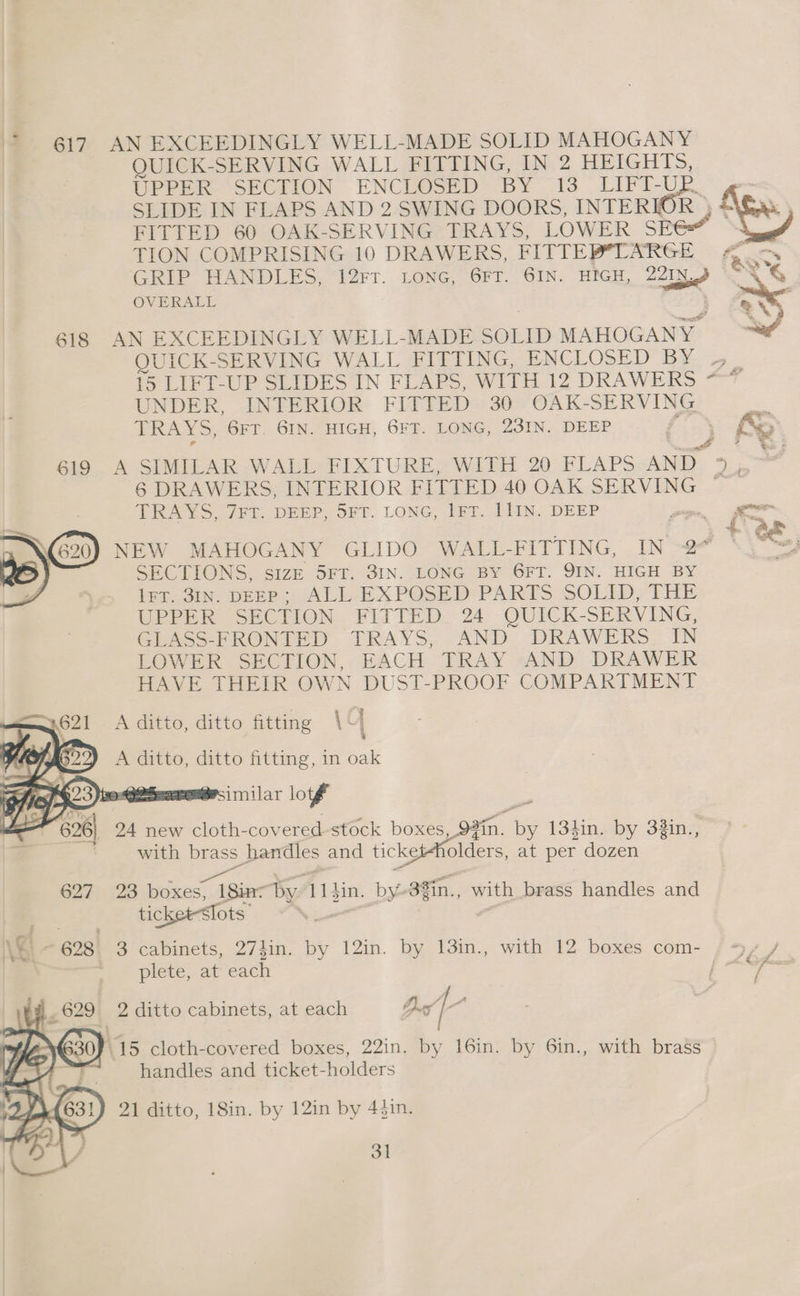 617 AN EXCEEDINGLY WELL-MADE SOLID MAHOGANY
QUICK-SERVING WALL FITTING, IN 2 HEIGHTS,
UPPER SECTION ENCLOSED BY 13 LIFT-UP
SLIDE IN FLAPS AND 2 SWING DOORS, INTERIOR
FITTED 60 OAK-SERVING TRAYS, LOWER SEC-
TION COMPRISING 10 DRAWERS, FITTED LARGE
GRIP HANDLES, 12FT. LONG, 6FT. 6IN. HIGH, 22IN.
OVERALL
618 AN EXCEEDINGLY WELL-MADE SOLID MAHOGANY
QUICK-SERVING WALL FITTING, ENCLOSED BY
15 LIFT-UP SLIDES IN FLAPS, WITH 12 DRAWERS
UNDER, INTERIOR FITTED 30 OAK-SERVING
TRAYS, 6FT. 6IN. HIGH, 6FT. LONG, 23IN. DEEP
619 A SIMILAR WALL FIXTURE, WITH 20 FLAPS AND
6 DRAWERS, INTERIOR FITTED 40 OAK SERVING
TRAYS, 7FT. DEEP, 5FT. LONG, 1FT. 11IN. DEEP
620 NEW MAHOGANY GLIDO WALL-FITTING, IN 2
SECTIONS, SIZE 5FT. 3IN. LONG BY 6FT. 9IN. HIGH BY
1FT. 3IN. DEEP; ALL EXPOSED PARTS SOLID, THE
UPPER SECTION FITTED 24 QUICK-SERVING,
GLASS-FRONTED TRAYS, AND DRAWERS IN
LOWER SECTION, EACH TRAY AND DRAWER
HAVE THEIR OWN DUST-PROOF COMPARTMENT
621 A ditto, ditto fitting
622 A ditto, ditto fitting, in oak
623 to 625 similar lot
626 24 new cloth-covered stock boxes, 9¾in. by 13½in. by 3¾in.,
with brass handles and ticket-holders, at per dozen
627 23 boxes, 18in. by 11½in. by 3¾in., with brass handles and
ticket-slots
628 3 cabinets, 27½in. by 12in. by 13in., with 12 boxes com-
plete, at each
629 2 ditto cabinets, at each
630 15 cloth-covered boxes, 22in. by 16in. by 6in., with brass
handles and ticket-holders
631 21 ditto, 18in. by 12in by 4½in.
31